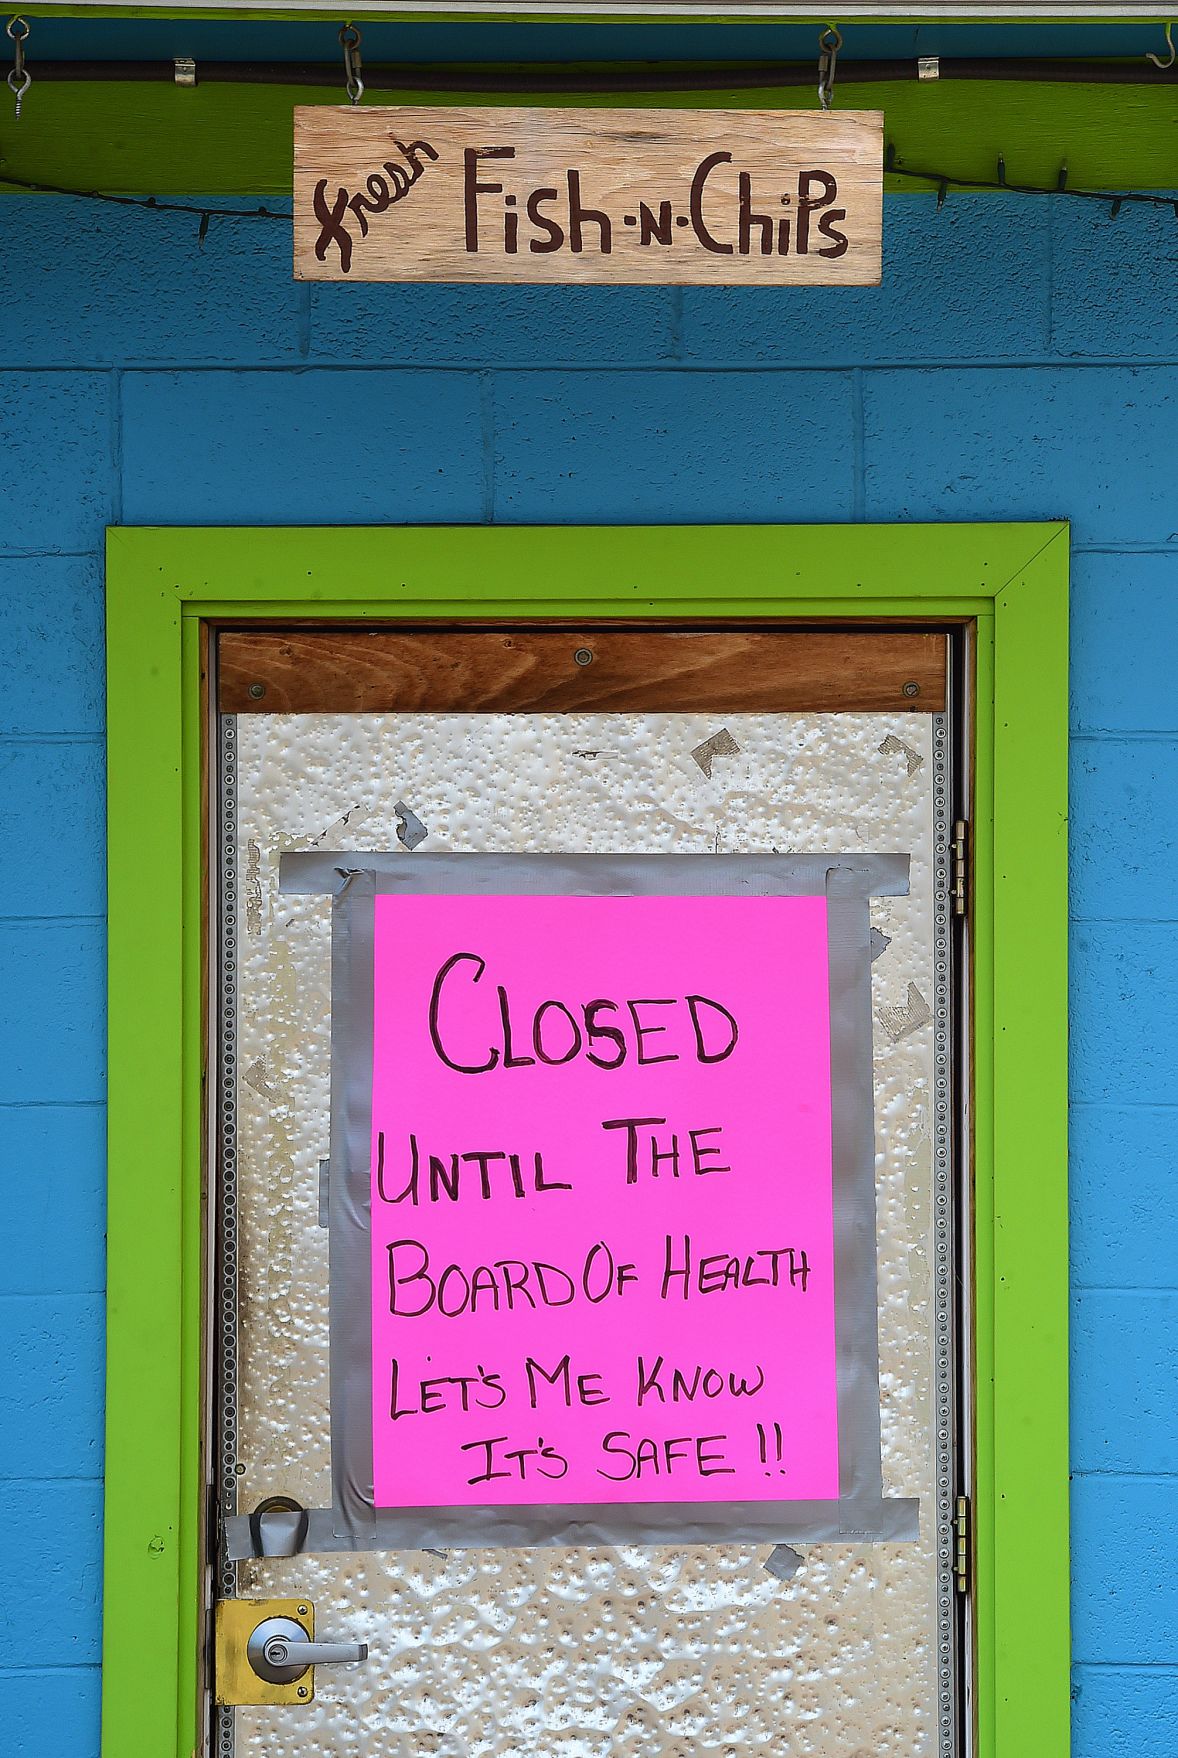 Fresh Fish·N·Chips
CLOSED
UNTIL THE
BOARD OF HEALTH
LET'S ME KNOW
IT'S SAFE !!